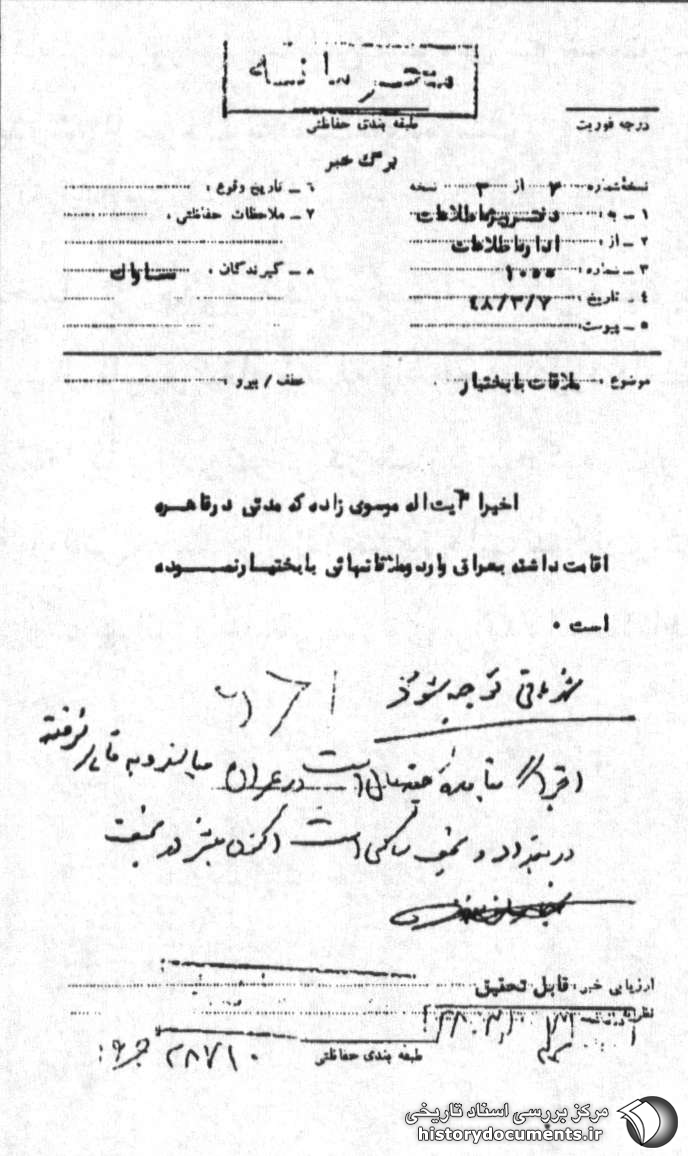 محرمانه
طبقه بندی حفاظتی
درجه فوریت
برگ خبر
نسخه شماره ۲ از ۳ نسخه
۱ – به : دفتر ویژه اطلاعات
۲ – از : اداره اطلاعات
۳ – شماره : ۱۰۰۰
٤ – تاریخ : ٤۸/۳/۷
۵ – پیوست :
٦ – تاریخ وقوع :
۷ – ملاحظات حفاظتی :
۸ – گیرندگان : ساواک
موضوع : ملاقات با بختیار
عطف / پیرو :
اخیرا آیت اله موسوی زاده که مدتی در قاهره
اقامت داشته بعراق وارد و ملاقاتهائی با بختیار نموده
است .
توجه شود
است در عراق میباشد و به قاهره نرفته
در بغداد و نجف ساکن است اکنون بیشتر در نجف
ارزیابی خبر : قابل تحقیق
طبقه بندی حفاظتی
۲۸۷۱۰
مرکز بررسی اسناد تاریخی
historydocuments.ir